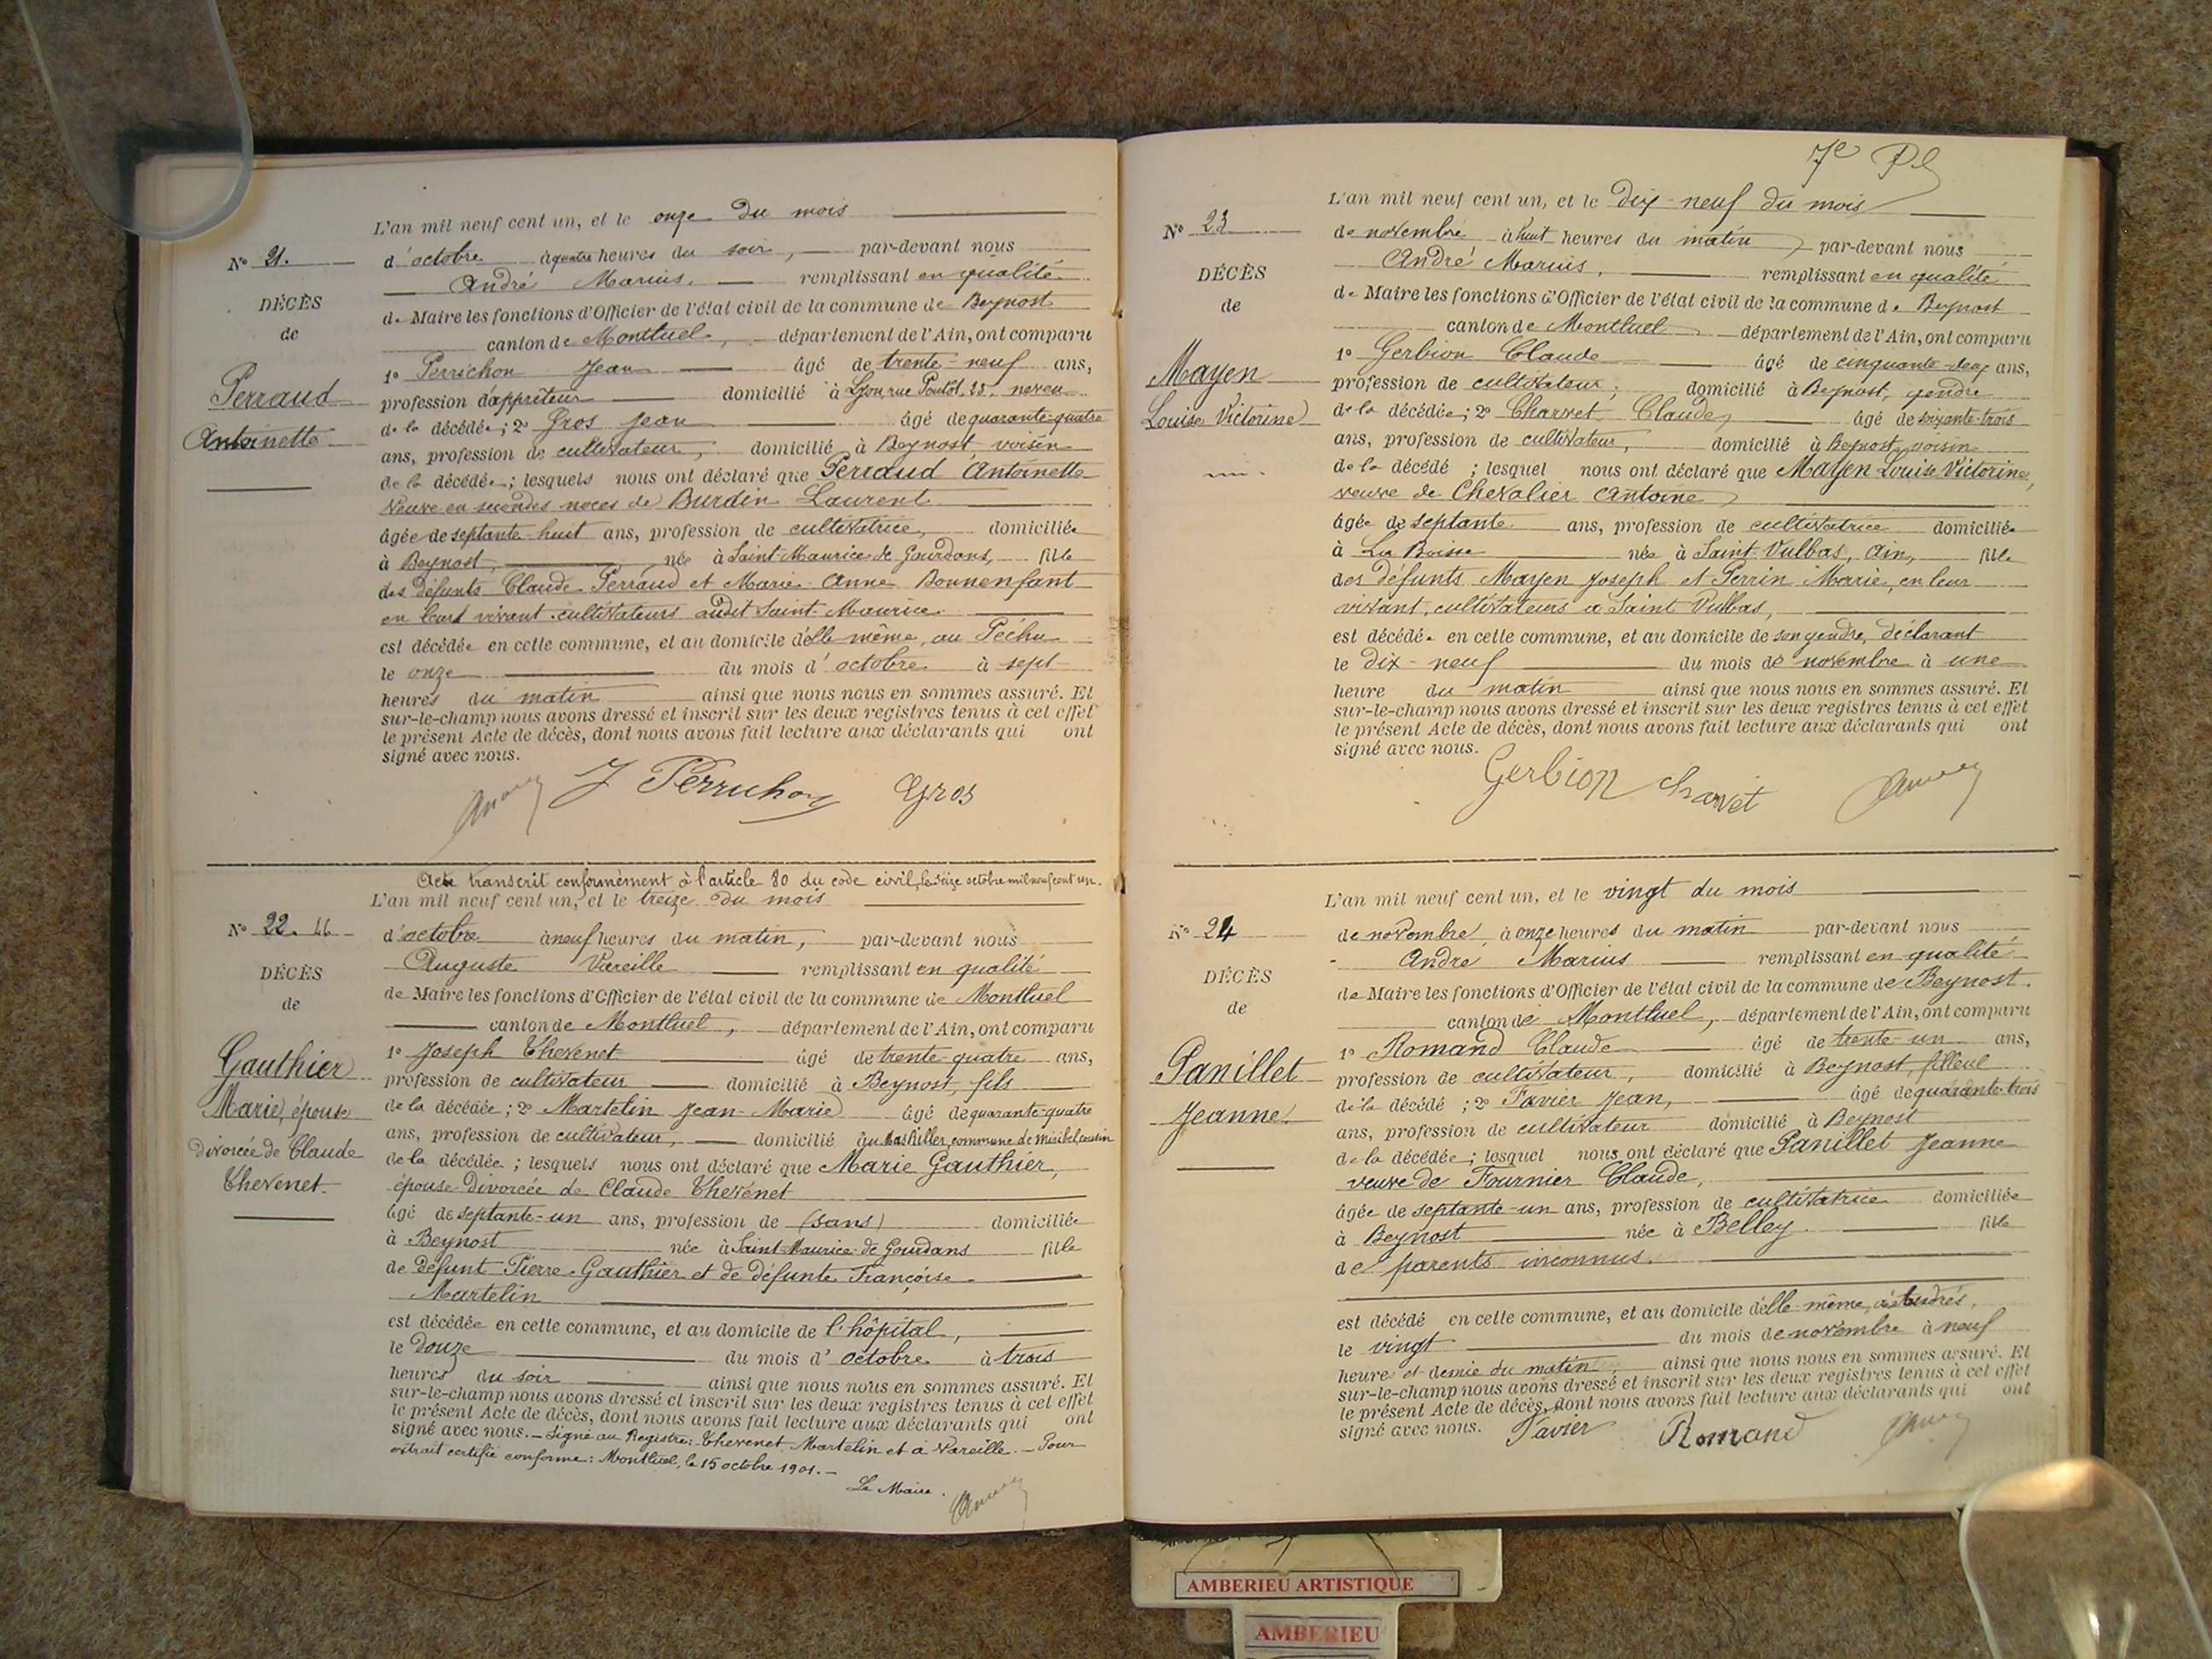 L'an mil neuf cent un, et le onze du mois
N° 21.
d'octobre à quatre heures du soir, par-devant nous
André Marius, remplissant en qualité
DÉCÈS
de Maire les fonctions d'Officier de l'état civil de la commune de Beynost
de
canton de Montluel, département de l'Ain, ont comparu
1° Perrichon Jean âgé de trente-neuf ans,
Perraud
profession d'apprêteur domicilié à Lyon rue 23, neveu
Antoinette
de la décédée; 2° Gros Jean âgé de quarante-quatre
ans, profession de cultivateur, domicilié à Beynost, voisin
de la décédée; lesquels nous ont déclaré que Perraud Antoinette
Veuve en secondes noces de Burdin Laurent
âgée de septante-huit ans, profession de cultivatrice, domiciliée
à Beynost, née à Saint-Maurice de Gourdans, fille
des défunts Claude Perraud et Marie-Anne Bonnenfant
en leurs vivant cultivateurs audit Saint-Maurice.
est décédée en cette commune, et au domicile d'elle même, au Péchu
le onze du mois d'octobre à sept
heures du matin ainsi que nous nous en sommes assuré. Et
sur-le-champ nous avons dressé et inscrit sur les deux registres tenus à cet effet
le présent Acte de décès, dont nous avons fait lecture aux déclarants qui ont
signé avec nous.
J Perrichon Gros
Acte transcrit conformément à l'article 80 du code civil, le seize octobre mil neuf cent un.
L'an mil neuf cent un, et le treize du mois
N° 22. 46
d'octobre à neuf heures du matin, par-devant nous
Auguste Vareille remplissant en qualité
DÉCÈS
de Maire les fonctions d'Officier de l'état civil de la commune de Montluel
de
canton de Montluel, département de l'Ain, ont comparu
1° Joseph Thevenet âgé de trente-quatre ans,
Gauthier
profession de cultivateur domicilié à Beynost, fils
Marie, épouse
de la décédée; 2° Martelin Jean-Marie âgé de quarante-quatre
ans, profession de cultivateur, domicilié au Mas Rillier, commune de Miribel, cousin
divorcée de Claude
de la décédée; lesquels nous ont déclaré que Marie Gauthier,
Thevenet.
épouse divorcée de Claude Thevenet
âgé de septante-un ans, profession de (sans) domiciliée
à Beynost née à Saint-Maurice-de Gourdans fille
de défunt Pierre Gauthier et de défunte Françoise
Martelin
est décédée en cette commune, et au domicile de l'hôpital,
le douze du mois d'octobre à trois
heures du soir ainsi que nous nous en sommes assuré. Et
sur-le-champ nous avons dressé et inscrit sur les deux registres tenus à cet effet
le présent Acte de décès, dont nous avons fait lecture aux déclarants qui ont
signé avec nous. — Signé au Registre: Thevenet Martelin et A Vareille. — Pour
extrait certifié conforme: Montluel, le 15 octobre 1901. —
Le Maire.
7e
L'an mil neuf cent un, et le dix-neuf du mois
N° 23
de novembre à huit heures du matin, par-devant nous
André Marius, remplissant en qualité
DÉCÈS
de Maire les fonctions d'Officier de l'état civil de la commune de Beynost
de
canton de Montluel département de l'Ain, ont comparu
1° Gerbion Claude âgé de cinquante-deux ans,
Mayen
profession de cultivateur; domicilié à Beynost, gendre
Louise Victorine
de la décédée; 2° Charvet Claude, âgé de soixante-trois
ans, profession de cultivateur, domicilié à Beynost, voisin
de la décédé ; lesquel nous ont déclaré que Mayen Louise Victorine,
veuve de Chevalier Antoine,
âgée de septante ans, profession de cultivatrice domiciliée
à La Boisse née à Saint-Vulbas, Ain, fille
des défunts Mayen Joseph et Perrin Marie, en leur
vivant, cultivateurs à Saint Vulbas,
est décédée en cette commune, et au domicile de son gendre, déclarant
le dix-neuf du mois de novembre à une
heure du matin ainsi que nous nous en sommes assuré. Et
sur-le-champ nous avons dressé et inscrit sur les deux registres tenus à cet effet
le présent Acte de décès, dont nous avons fait lecture aux déclarants qui ont
signé avec nous.
Gerbion Charvet
L'an mil neuf cent un, et le vingt du mois
N° 24
de novembre, à onze heures du matin par-devant nous
André Marius remplissant en qualité
DÉCÈS
de Maire les fonctions d'Officier de l'état civil de la commune de Beynost.
de
canton de Montluel, département de l'Ain, ont comparu
1° Romand Claude âgé de trente-un ans,
Panillet
profession de cultivateur, domicilié à Beynost, filleul
Jeanne
de la décédé ; 2° Favier Jean, âgé de quarante-trois
ans, profession de cultivateur domicilié à Beynost
de la décédée; lesquel nous ont déclaré que Panillet Jeanne
veuve de Fournier Claude,
âgée de septante-un ans, profession de cultivatrice domiciliée
à Beynost née à Belley fille
de parents inconnus.
est décédé en cette commune, et au domicile d'elle-même,
le vingt du mois de novembre à neuf
heure et demie du matin ainsi que nous nous en sommes assuré. Et
sur-le-champ nous avons dressé et inscrit sur les deux registres tenus à cet effet
le présent Acte de décès, dont nous avons fait lecture aux déclarants qui ont
signé avec nous. Favier Romand
AMBERIEU ARTISTIQUE
AMBERIEU